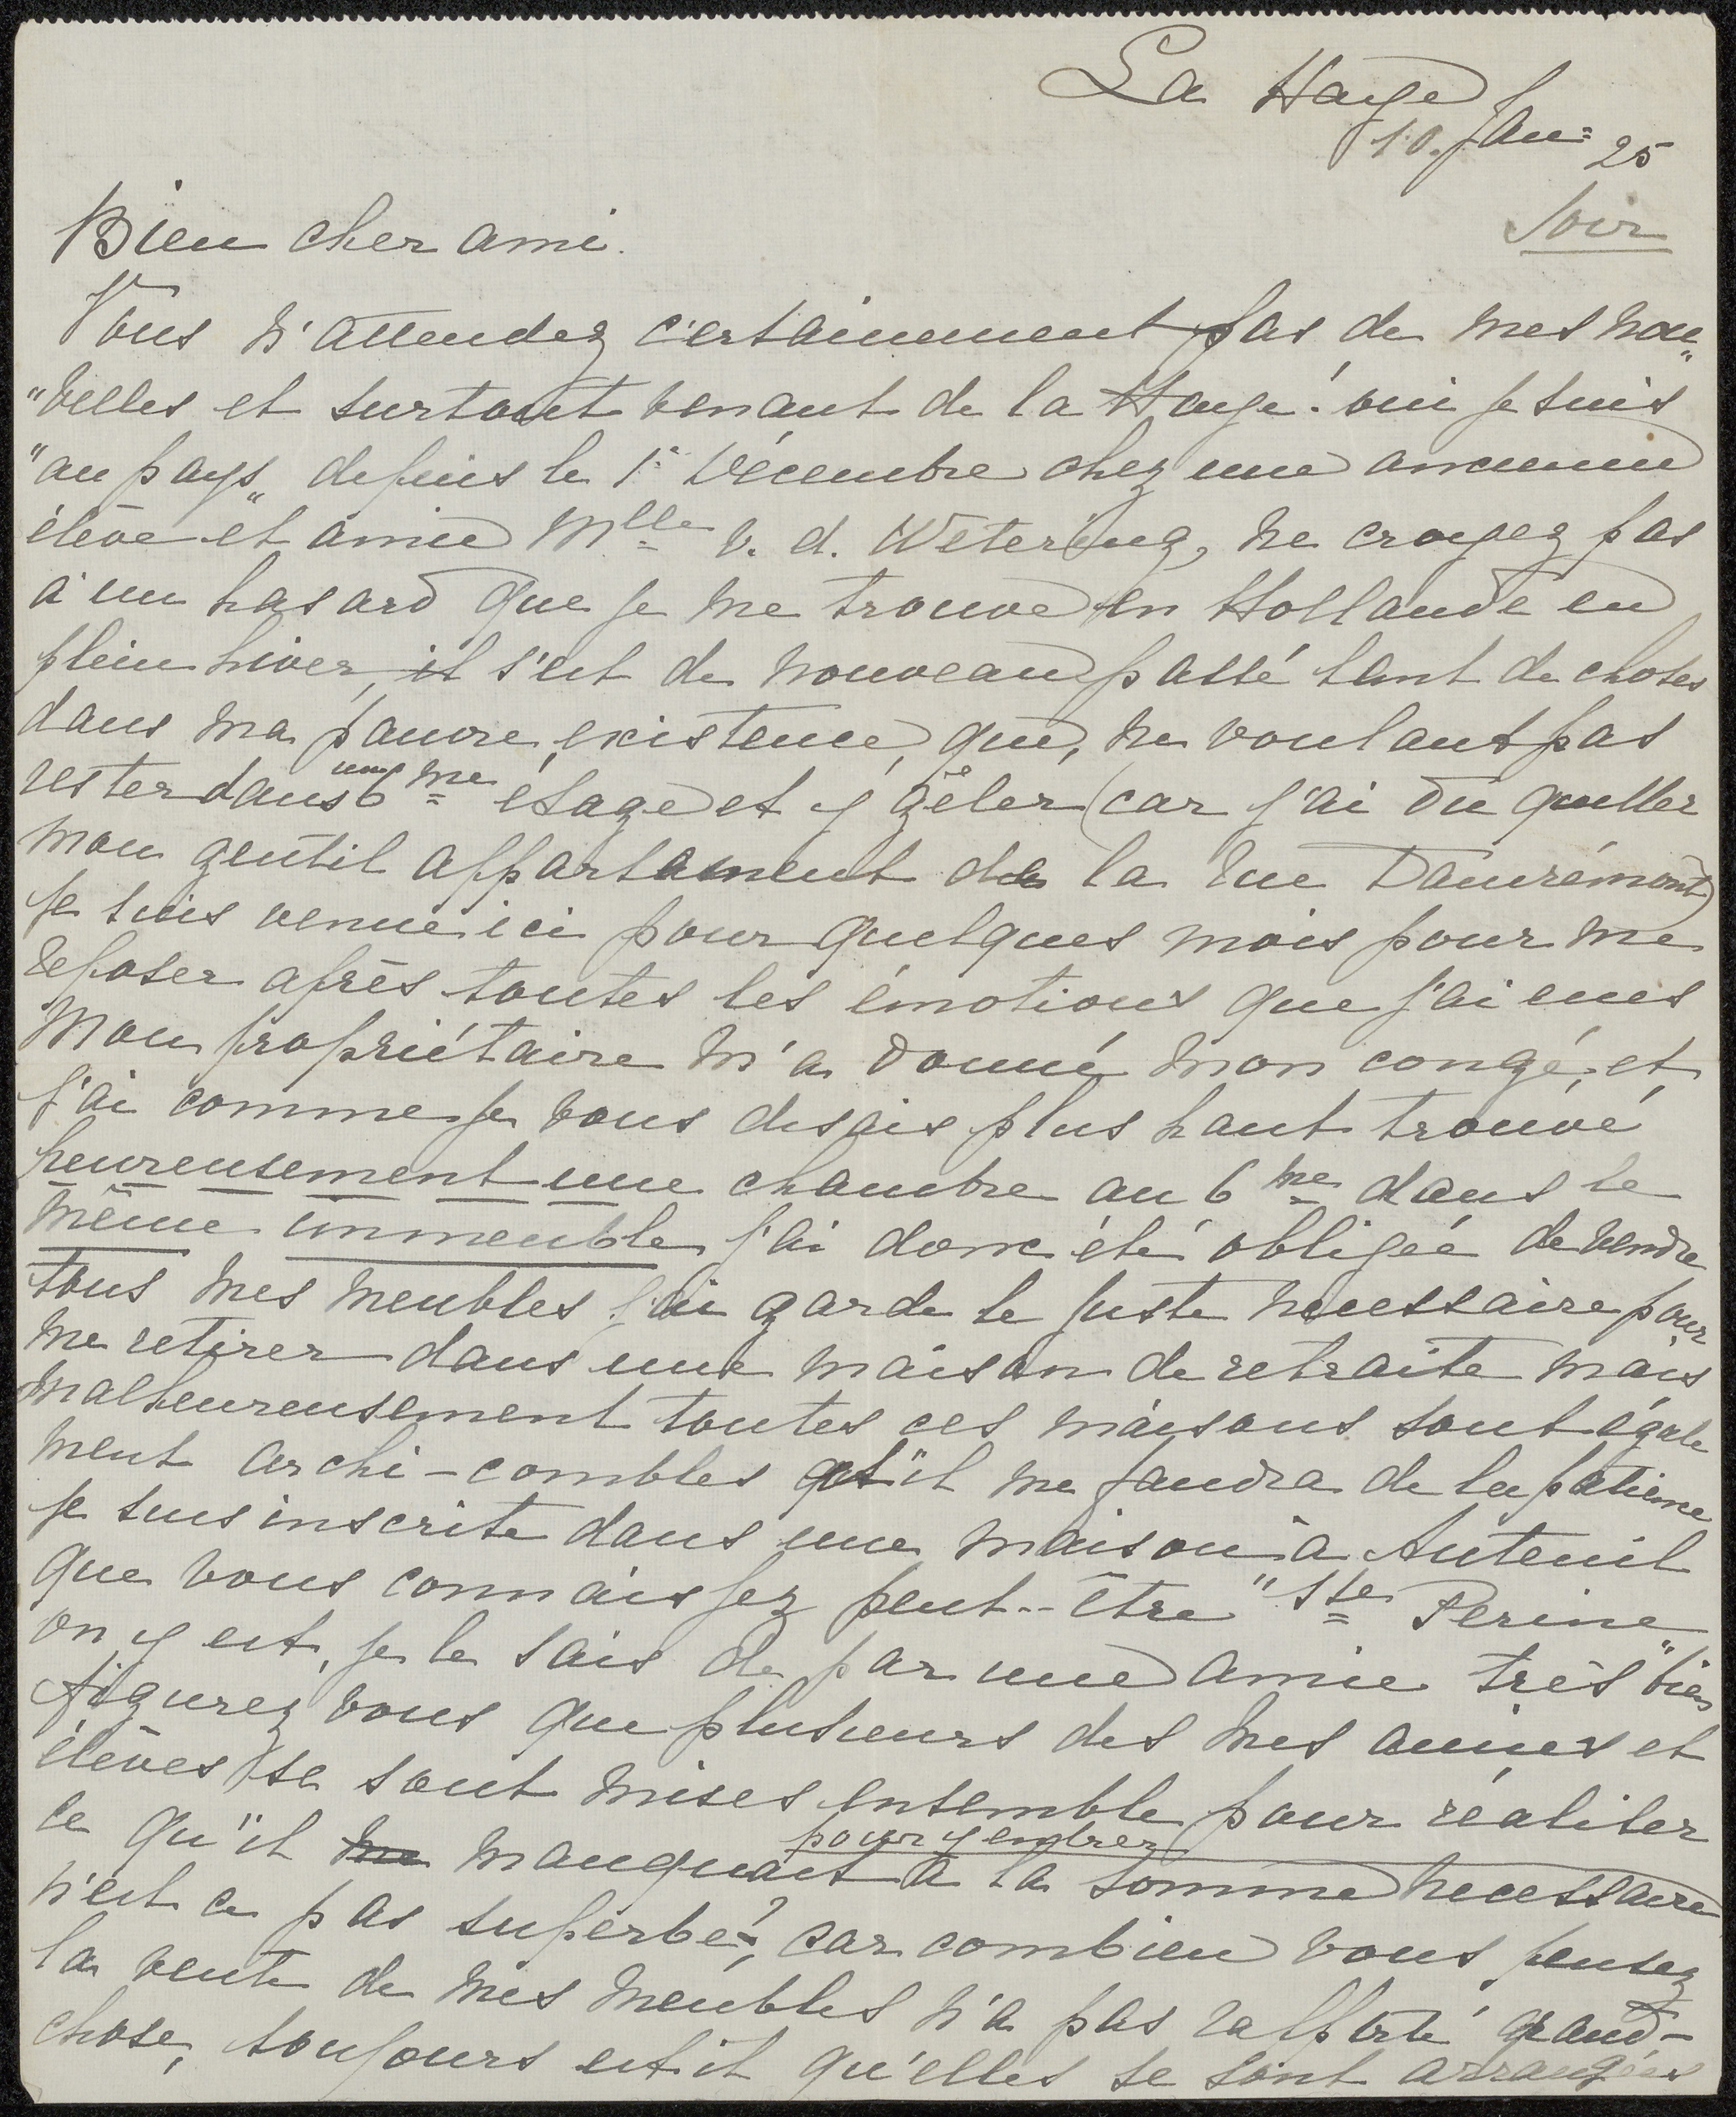 La Haye
10. Jan= 25
Soir
Bien cher ami.
Vous n'attendez certainement pas de mes nou„
"velles et surtout venant de la Haye! oui je suis
"au pays" depuis le 1r Décembre chez une ancienne
élève et amie Mlle v. d. Wetering, ne croyez pas
à un hasard que je me trouve en Hollande en
plein hiver, il s'est de nouveau passé tant de choses
dans ma pauvre existence, que, ne voulant pas
rester dans un 6me étage et y gêler (car j'ai dû quitter
mon gentil appartement de la rue Damrémont)
je suis venue ici pour quelques mois pour me
reposer après toutes les émotions que j'ai eues
Mon propriétaire m'a donné mon congé, et
j'ai comme je vous disais plus haut trouvé
heureusement une chambre au 6me dans le
même immeuble j'ai donc été obligée de vendre
tous mes meubles j'ai garde le juste necessaire pour
me retirer dans une maison de retraite mais
malheureusement toutes ces maisons sont égale
ment archi-combles qu'il me faudra de la patience
je suis inscrite dans une maison à Auteuil
que vous connaissez peut-être "Ste Perine"
on y est, je le sais de par une amie très bien
figurez vous que plusieurs des mes amies et
élèves se sont mises ensemble pour réaliser
ce qu'il me manquait pour y entrer à la somme necessaire
n'est ce pas superbe?, car combien vous pensez
la vente de mes meubles n'a pas rapporté grand-
chose, toujours est il qu'elles se sont arrangées